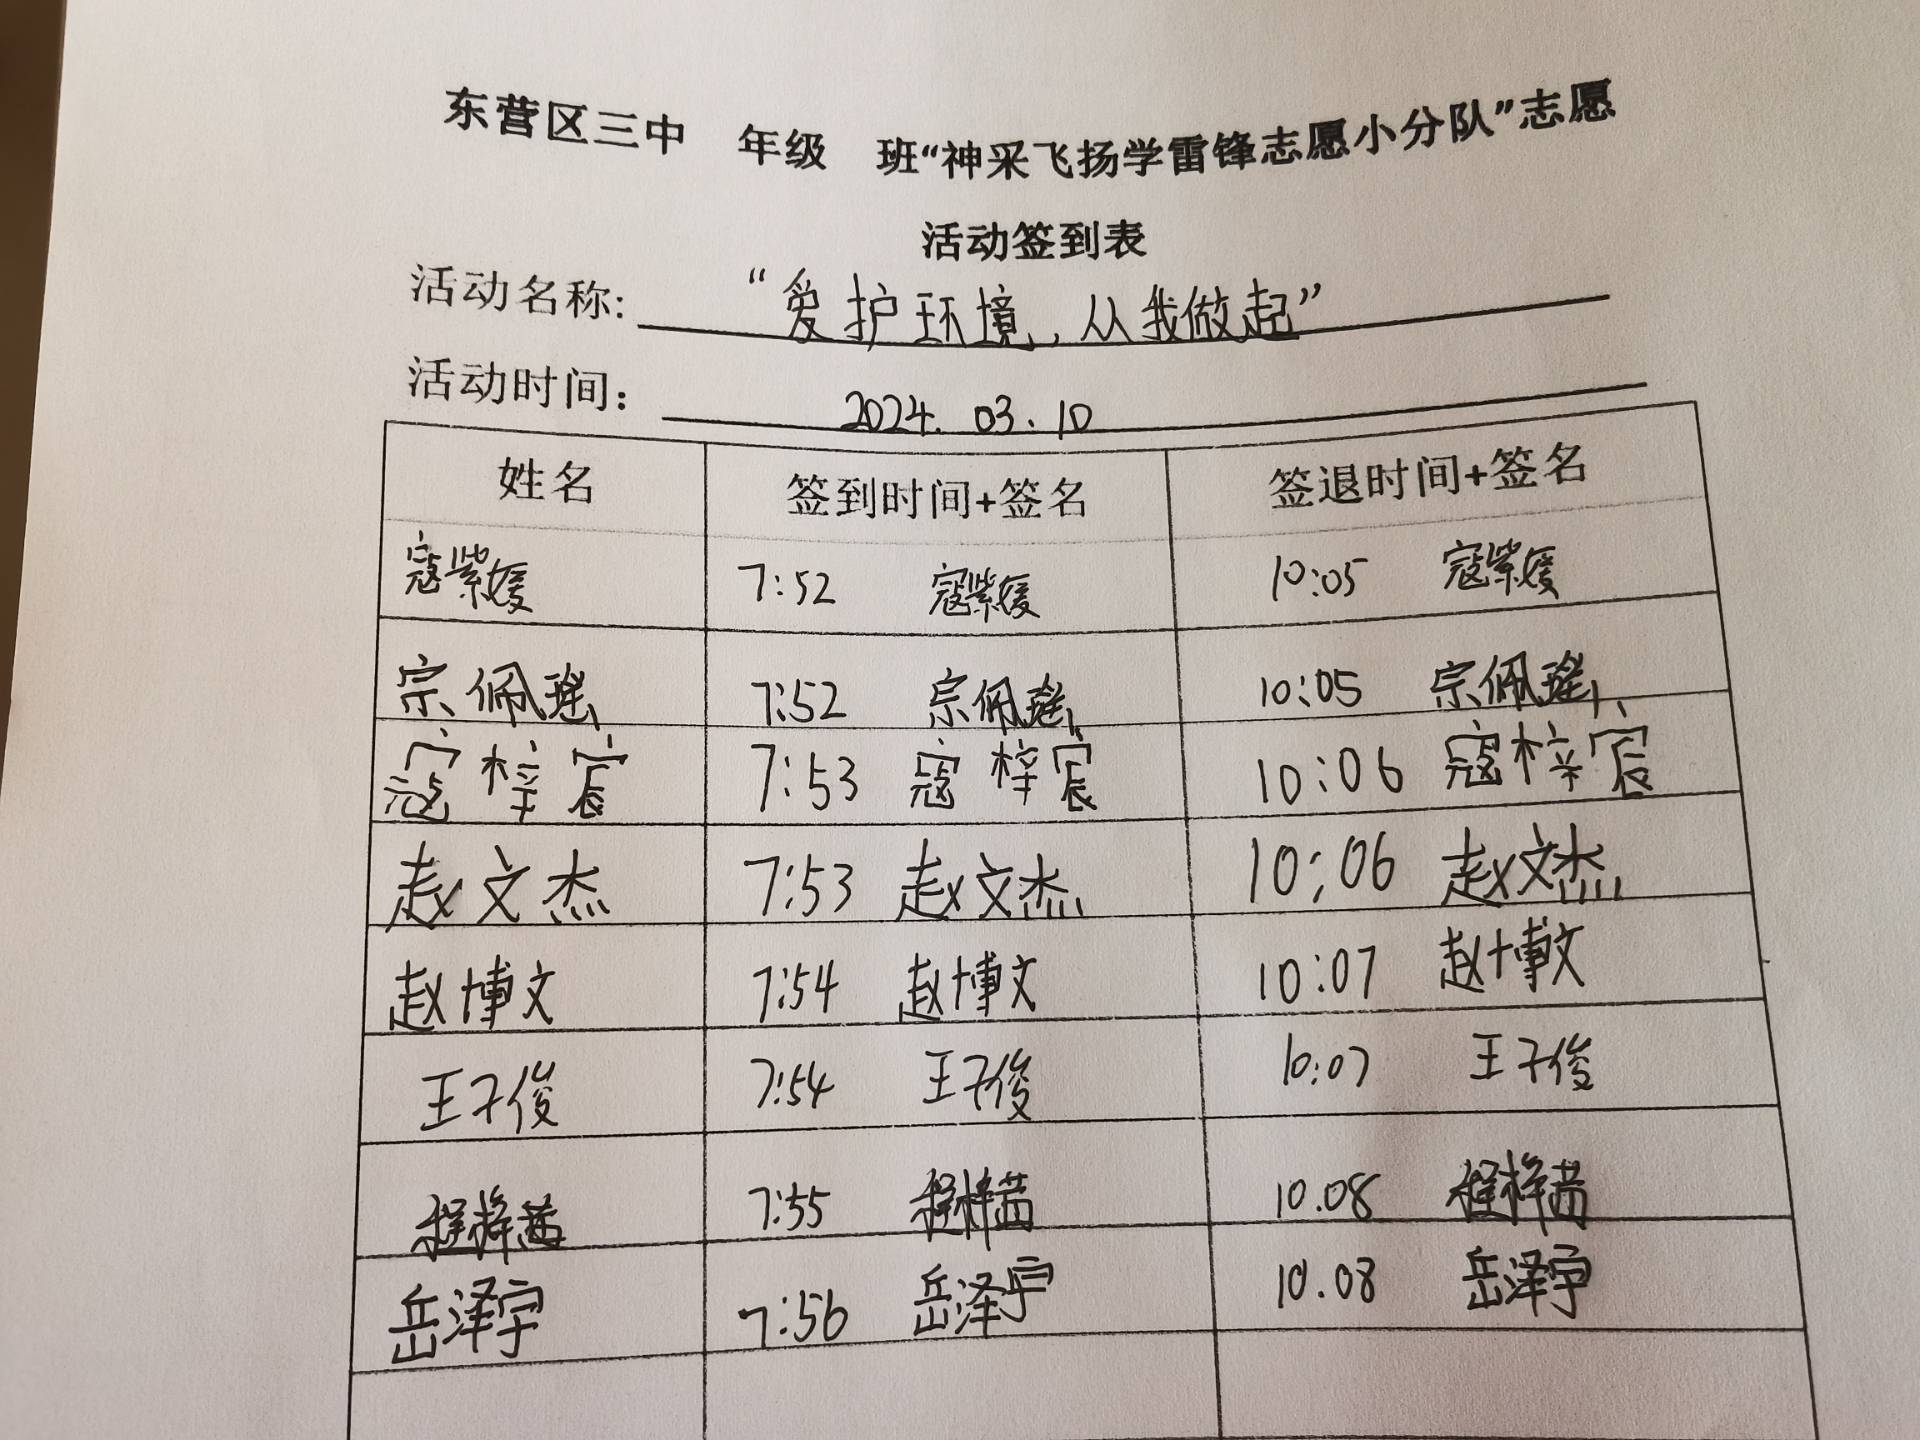 东营区三中 年级 班“神采飞扬学雷锋志愿小分队”志愿
活动签到表
活动名称: “爱护环境, 从我做起”
活动时间: 2024. 03. 10
姓名 签到时间+签名 签退时间+签名
寇紫媛 7:52 寇紫媛 10:05 寇紫媛
宗佩瑶 7:52 宗佩瑶 10:05 宗佩瑶
寇梓宸 7:53 寇梓宸 10:06 寇梓宸
赵文杰 7:53 赵文杰 10:06 赵文杰
赵博文 7:54 赵博文 10:07 赵博文
王子俊 7:54 王子俊 10:07 王子俊
程梓茜 7:55 程梓茜 10.08 程梓茜
岳泽宇 7:56 岳泽宇 10.08 岳泽宇